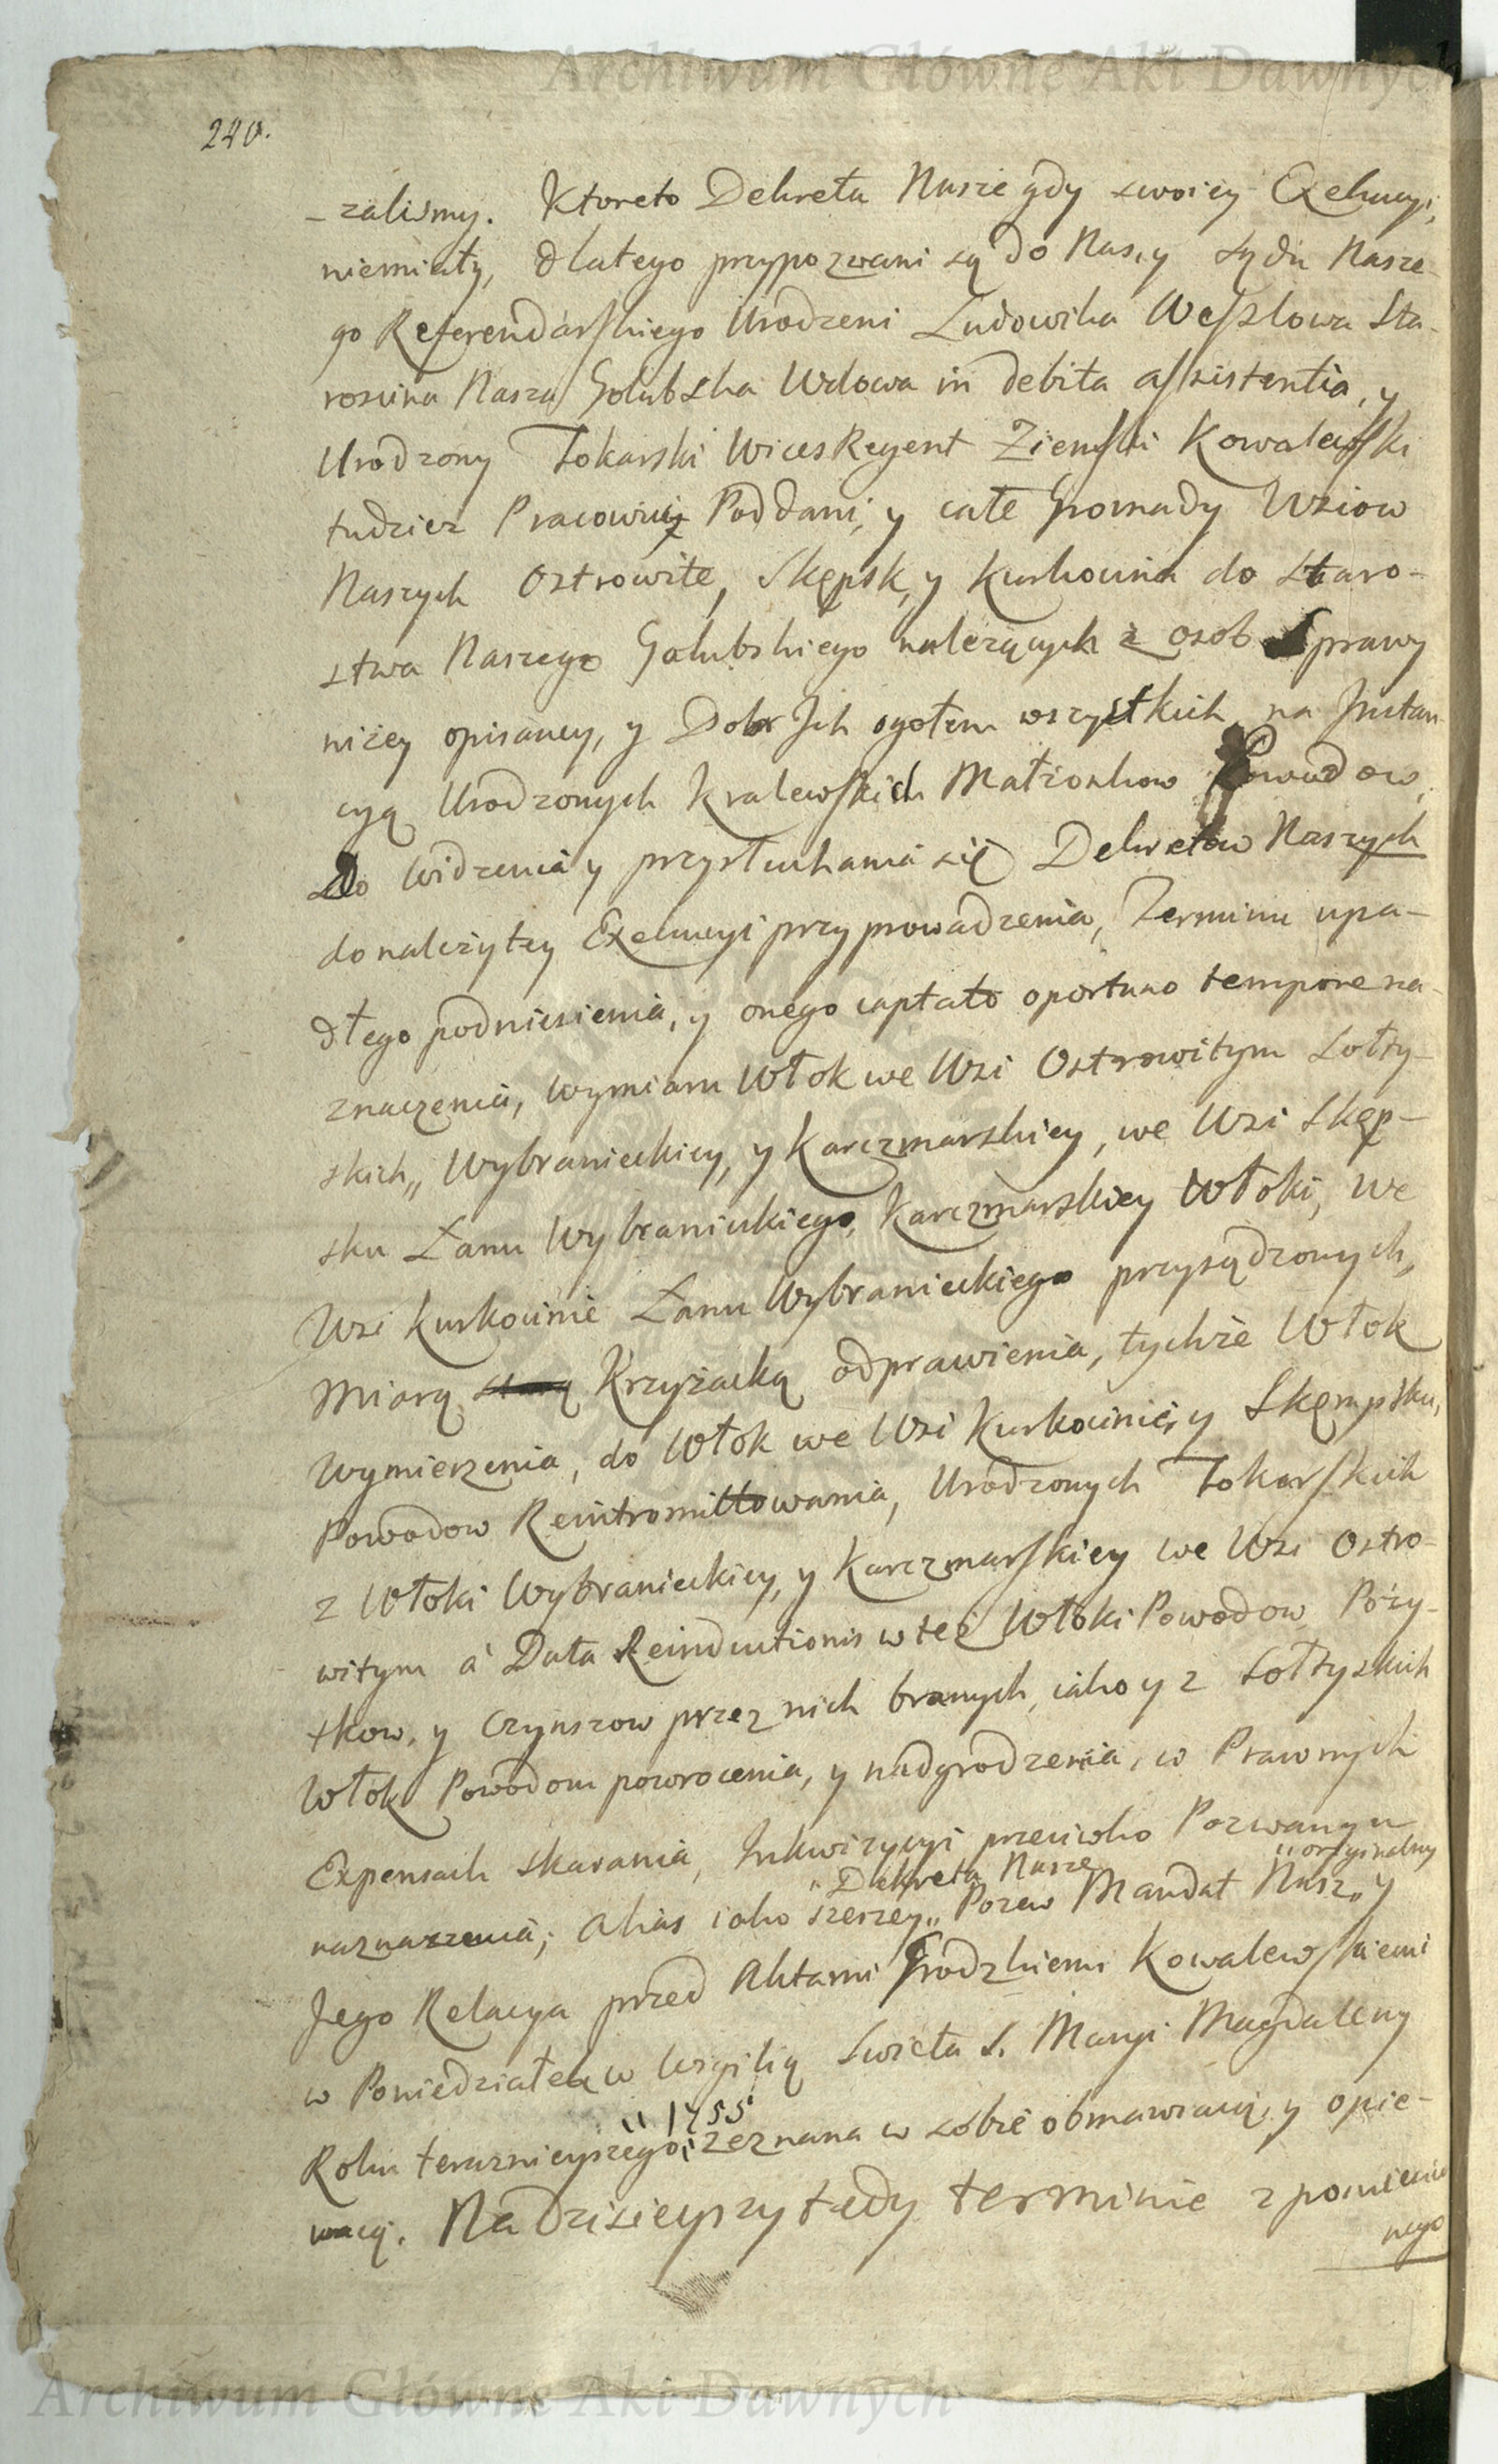 Archiwum Główne Akt Dawnych
240.
-zalismy. Ktoreto Dekreta Nasze gdy swoiey Exekucyi,
niemiały, dlatego przypozwani są do Nas, y Sądu Nasze-
go Referendarskiego Urodzeni Ludowika Weszlowa Sta-
roscina Nasza Golubska Wdowa in debita assistentia, y
Urodzony Tokarski WicesRegent Ziemski Kowalewski
tudziez Pracowici Poddani, y całe Gromady Wsiow
Naszych Ostrowite, Skępsk, y Kurkocina do Staro-
stwa Naszego Golubskiego nalezących z osob Sprawy
niżey opisaney, y Dobr Jch ogołem wszystkich na Jnstan-
cyą Urodzonych Kralewskich Małżonkow Powodow,
Do widzenia y przysłuchania się Dekretow Naszych
do należytey Exekucyi przyprowadzenia, Terminu upa-
dłego podniesienia, y onego captato oportuno tempore na-
znaczenia, wymiaru Włok we Wsi Ostrowitym Sołty-
skich,, Wybranieckiey, y Karczmarskiey, we Wsi Skęp-
sku Łanu Wybranieckiego, Karczmarskiey Włoki, we
Wsi Kurkocinie Łanu Wybranieckiego przysądzonych,
Miarą Krzyżacką odprawienia, tychże Włok
Wymierzenia, do Włok we Wsi Kurkocinie, y Skęmpsku,
Powodow Reintromittowania, Urodzonych Tokarskich
z Włoki Wybranieckiey, y Karczmarskiey we Wsi Ostro-
witym à Data Reinductionis w też Włoki Powodow Pozy-
tkow, y Czynszow przez nich branych, iako y z Sołtyskich
Włok Powodom powrocenia, y nadgrodzenia, w Prawnych
Expensach skarania, Inkwizycyi przeciwko Pozwanym
naznaczenia; Alias iako szerzey,, Pozew Mandat Nasz,, y
,, Dekreta Nasze ,, oryginalny
Jego Relacya przed Aktami Grodzkiemi Kowalewskiemi
w Poniedziałek w Wigilią Swięta S. Maryi Magdaleny
Roku teraznieyszego,, zeznana w sobie obmawiaią, y opie-
,, 1755
waią. Na Dzisieyszy tedy terminie z pomienio-
nego
Archiwum Główne Akt Dawnych